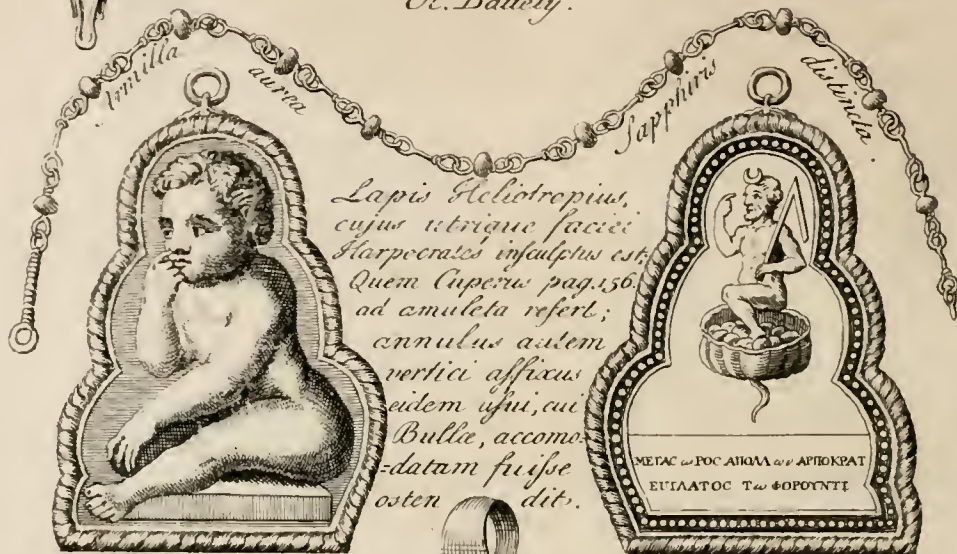 Armilla aurea Sapphiris distincta.
Lapis Heliotropius,
cujus utrique faciei
Harpocrates insculptus est;
Quem Cuperus pag. 156.
ad amuleta refert;
annulus autem
vertici affixus
eidem usui, cui
Bullæ, accomo=
=datam fuisse
osten dit.
ΜΕΓΑC ωΡΟC ΑΠΟΛΛωΝ ΑΡΠΟΚΡΑΤ
ΕΥΙΛΑΤΟC Τω ΦΟΡΟΥΝΤΙ